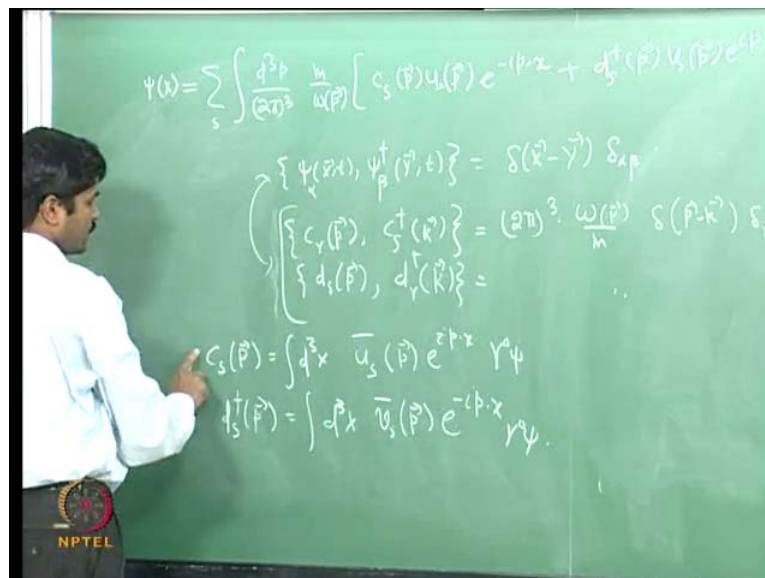 ψ(x) = ∑_s ∫ d³p/(2π)³ m/ω(p⃗) [ c_s(p⃗) u_s(p⃗) e^{-ip·x} + d_s†(p⃗) v_s(p⃗) e^{ip
{ ψ_α(x⃗,t), ψ_β†(y⃗,t) } = δ(x⃗-y⃗) δ_{αβ}.
{ c_r(p⃗), c_s†(k⃗) } = (2π)³. ω(p⃗)/m δ(p⃗-k⃗) δ
{ d_s(p⃗), d_r†(k⃗) } = ..
c_s(p⃗) = ∫ d³x ū_s(p⃗) e^{ip·x} γ⁰ψ
d_s†(p⃗) = ∫ d³x v̄_s(p⃗) e^{-ip·x} γ⁰ψ.
NPTEL